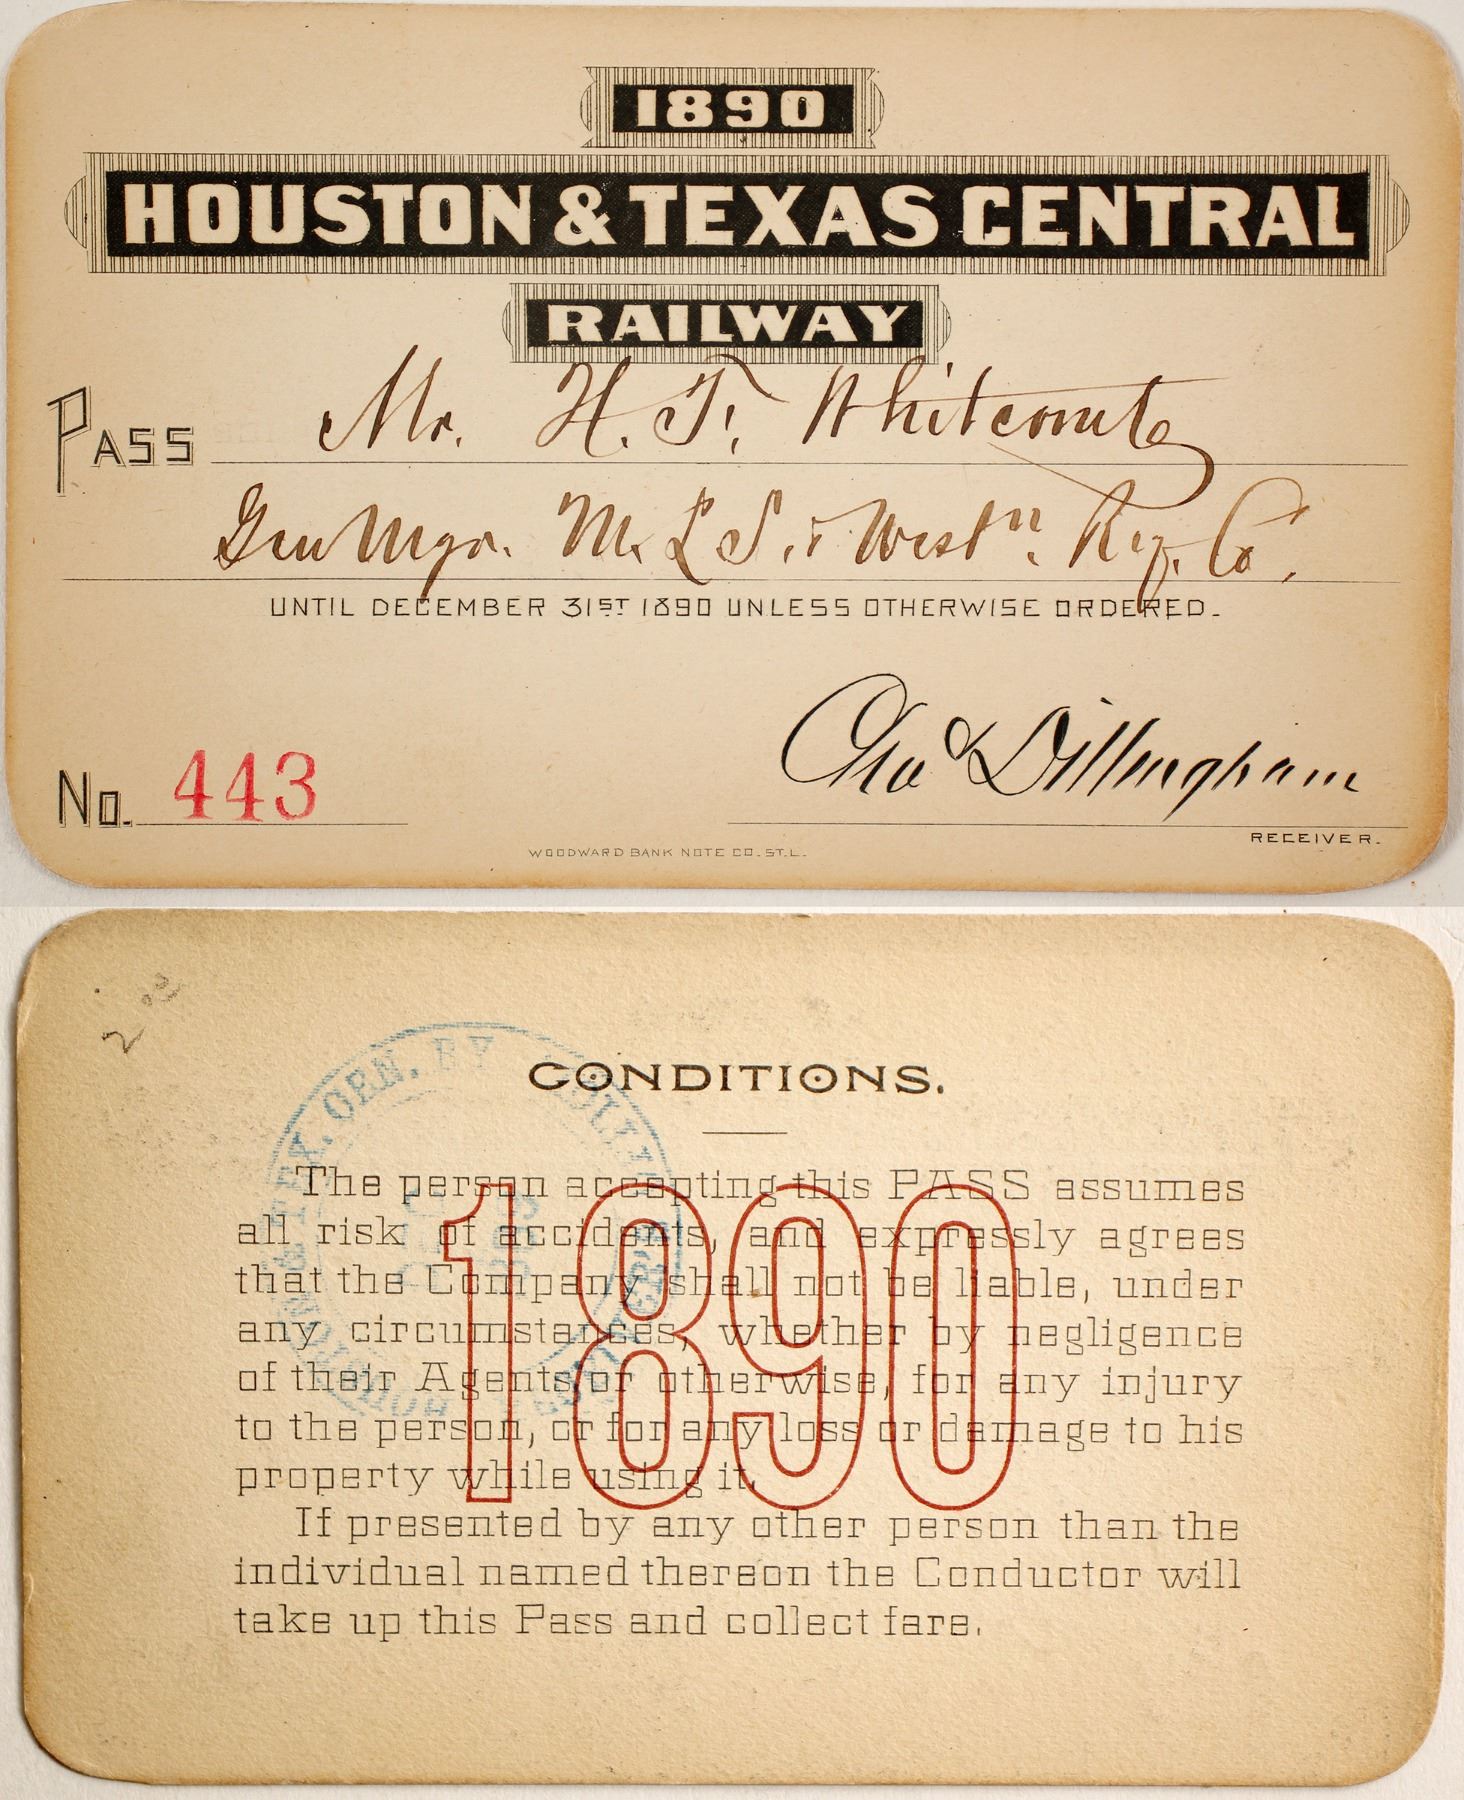 1890
HOUSTON & TEXAS CENTRAL
RAILWAY
PASS Mr. H. F. Whitcomb
Gen Mgr. M. L. S. & West'n. Ry. Co.
UNTIL DECEMBER 31ST 1890 UNLESS OTHERWISE ORDERED.
No. 443
Chas Dillingham
RECEIVER.
WOODWARD BANK NOTE CO. ST. L.
CONDITIONS.
The person accepting this PASS assumes
all risk of accidents, and expressly agrees
that the Company shall not be liable, under
any circumstances, whether by negligence
of their Agents, or otherwise, for any injury
to the person, or for any loss or damage to his
property while using it.
If presented by any other person than the
individual named thereon the Conductor will
take up this Pass and collect fare.
1890